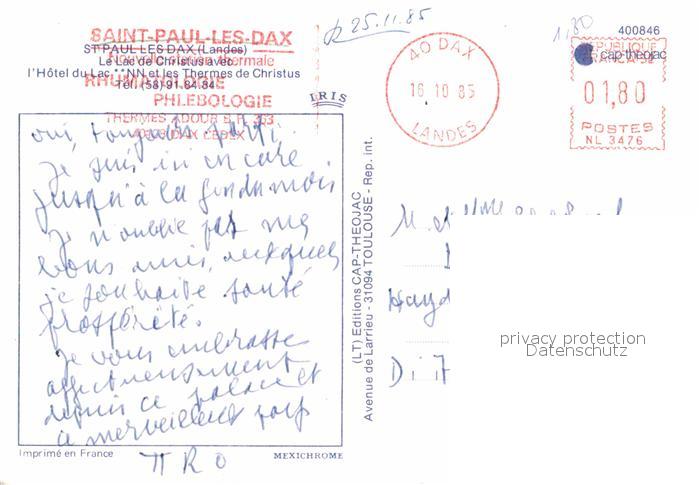 SAINT-PAUL-LES-DAX
ST PAUL LES DAX (Landes)
Nouvelle station thermale
Le Lac de Christus avec
l'Hôtel du Lac, **NN et les Thermes de Christus
Tél. (58) 91.84.84
RHUMATOLOGIE
PHLEBOLOGIE
THERMES ADOUR B.P. 353
CEDEX
IRIS
25.11.85
40 DAX
16 10 85
LANDES
1,80
400846
REPUBLIQUE
FRANÇAISE
cap-theojac
01,80
POSTES
NL 3476
oui, toujours parti.
Je suis ici en cure
jusqu'à la fin du mois
Je n'oublie pas mes
bons amis, auxquels
je souhaite santé
prospérité.
Je vous embrasse
affectueusement
depuis ce palace et
ce merveilleux pays
(LT) Editions CAP-THEOJAC
Avenue de Larrieu - 31094 TOULOUSE - Rep. int.
M. et Mme
Hayd
privacy protection
Datenschutz
Imprimé en France
MEXICHROME